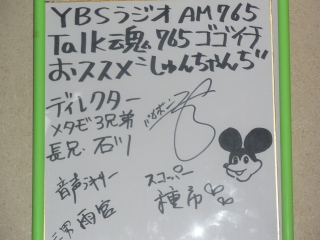 YBSラジオ AM765
Talk魂 765ゴゴイチ
おススメ=しゅんちゃんぢ
ディレクター
メタビ3兄弟
長兄 石川
音声
三男 雨宮
スコッパー